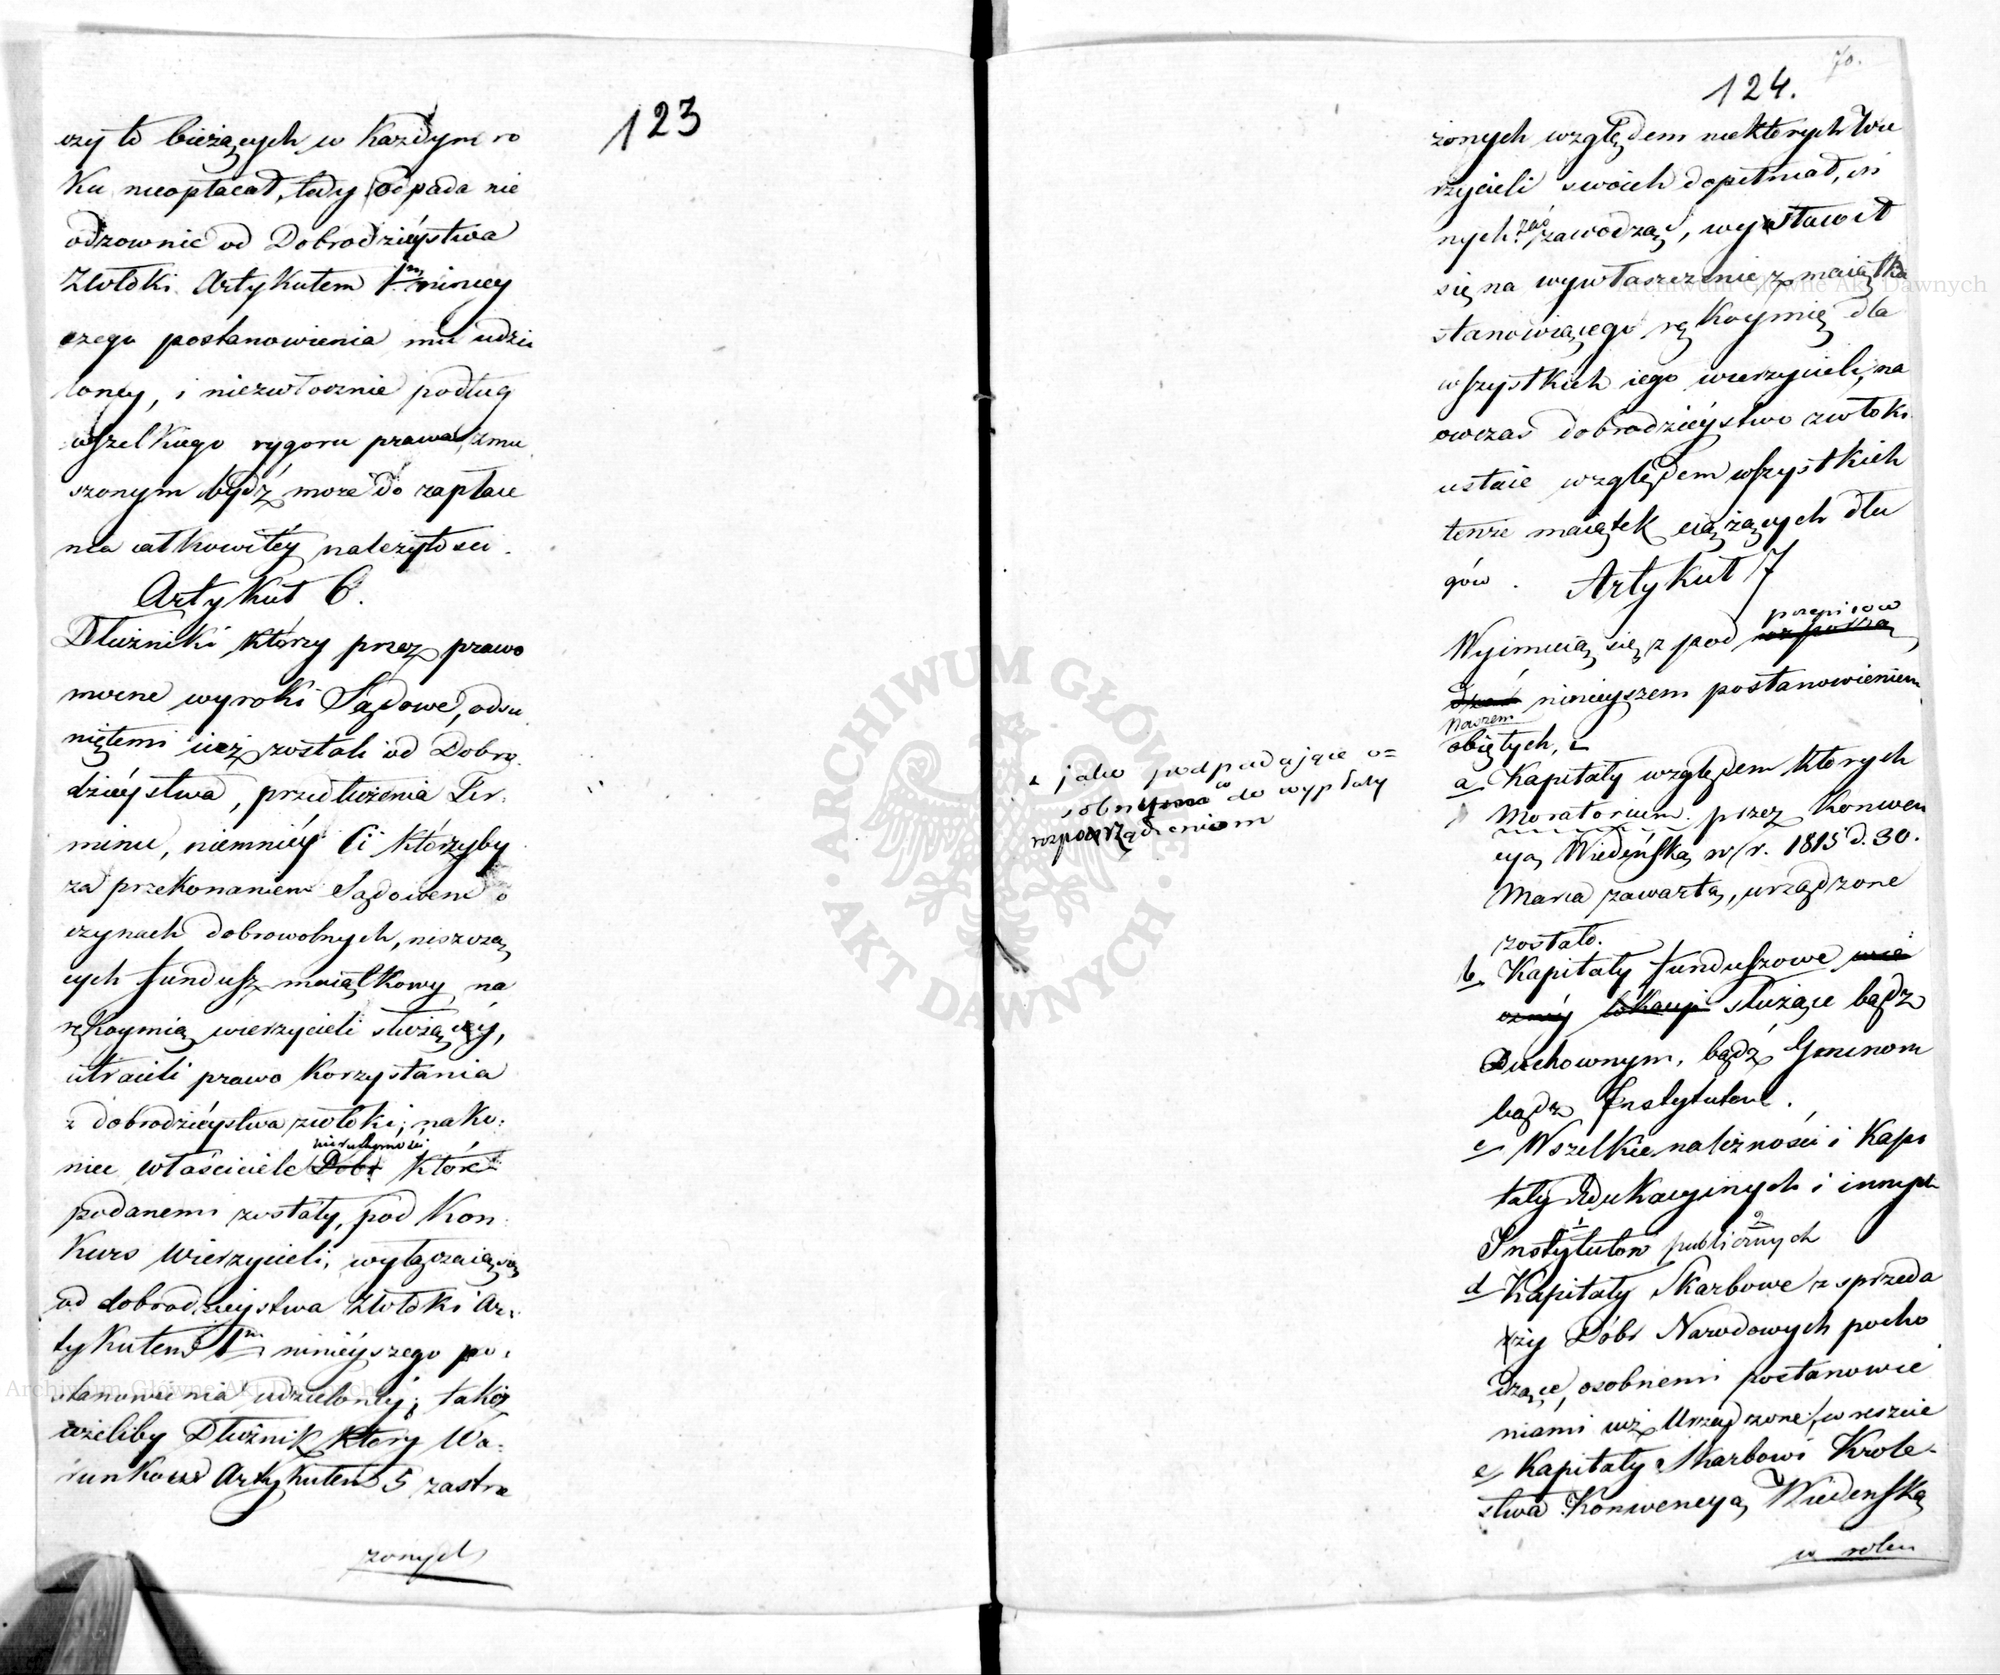 123
czy to bieżących w każdym ro
ku nieopłacał, tedy odpada nie
odzownie od Dobrodzieystwa
Zwłoki Artykułem 1m niniey
szego postanowienia mu udzie
loney, i niezwłocznie podług
wszelkiego rygoru prawa zmu
szonym bydź może do zapłace
nia całkowitéy należytości.
Artykuł 6.
Dłużniki którzy przez prawo
mocne wyroki Sądowe, odsu
niętemi iuż zostali od Dobro
dziéystwa, przedłużenia Ter-
minu, niemniéy Ci którzyby
za przekonaniem Sądowem o
czynach dobrowolnych, niszczą
cych fundusz maiątkowy na
rękoymią wierzycieli służący,
utracili prawo korzystania
z dobrodziéystwa zwłoki; nako-
niec właściciele nieruchomości Dóbr które
podanemi zostały, pod Kon-
kurs wierzycieli, wyłączaią się
od dobrodzieystwa Zwłoki Ar-
tykułem 1m ninieyszego po-
stanowienia udzieloney; takoż
ieżeliby Dłużnik który Wa-
runków Artykułem 5 zastrze
żonych
70.
124.
żonych względem niektorych Wie
rzycieli swoich dopełniał, in
nych zaś zawodząc, wystawił
się na wywłaszczenie z maiątku
stanowiącego rękoymię dla
wszystkich iego wierzycieli, na
owczas dobrodzieystwo zwłoki
ustaie względem wszystkich
tenże maiątek ciążących dłu
gów.
Artykuł 7
Wyimuią się z pod przepisów rozporzą
dzeń ninieyszem postanowieniem
Naszem
obiętych,
jako podpadające o=
sobnym do wypłaty
rozporządzeniom
a Kapitały względem których
Moratorium przez Konwen
cyą Wiedeńską w r. 1815 d. 30.
Marca zawartą, urządzone
zostało.
b. Kapitały funduszowe wie
czney lokacyi służące bądź
Duchownym, bądź Gminom
bądź Instytutom.
c Wszelkie należności i Kapi
tały Edukacyinych i innych
Instytutow publicznych
d Kapitały Skarbowe z sprzeda
ży Dóbr Narodowych pocho
dzące, osobnemi postanowie
niami iuż Urządzone, w reszcie
e Kapitały Skarbowi Krole-
stwa Konwencyą Wiedeńską
w roku
ARCHIWUM GŁÓWNE AKT DAWNYCH
Archiwum Główne Akt Dawnych
Archiwum Główne Akt Dawnych